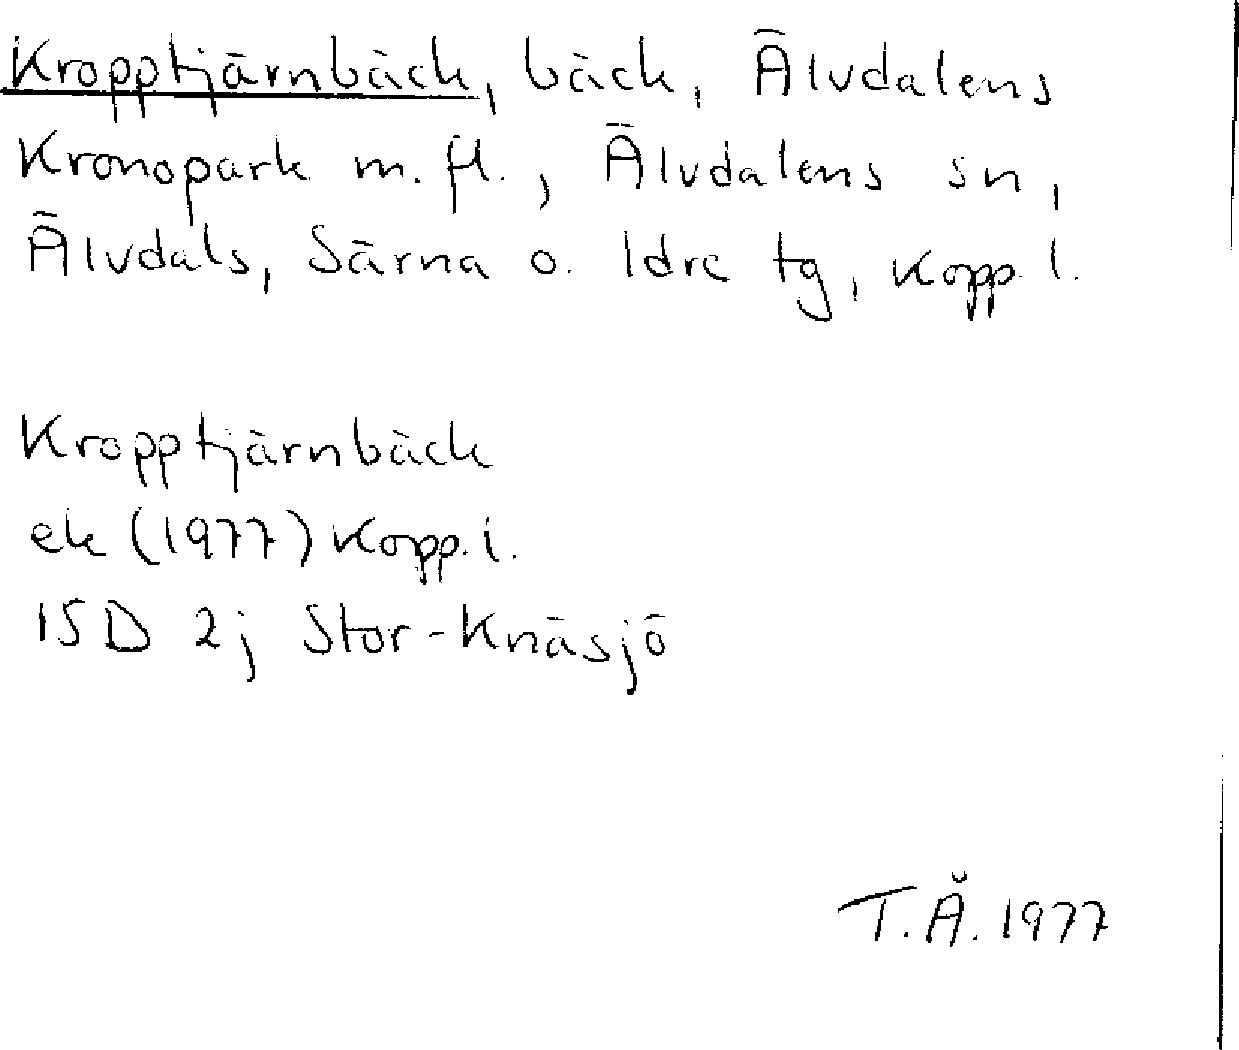 Kropptjärnbäck, bäck, Älvdalens
Kronopark m. fl., Älvdalens sn,
Älvdals, Särna o. Idre tg, Kopp. l.
Kropptjärnbäck
ek (1977) Kopp. l.
15D 2j Stor-Knäsjö
T.Å. 1977